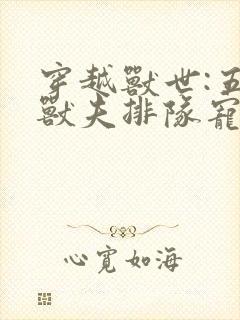 穿越獸世:五
獸夫排隊寵
心寬如海